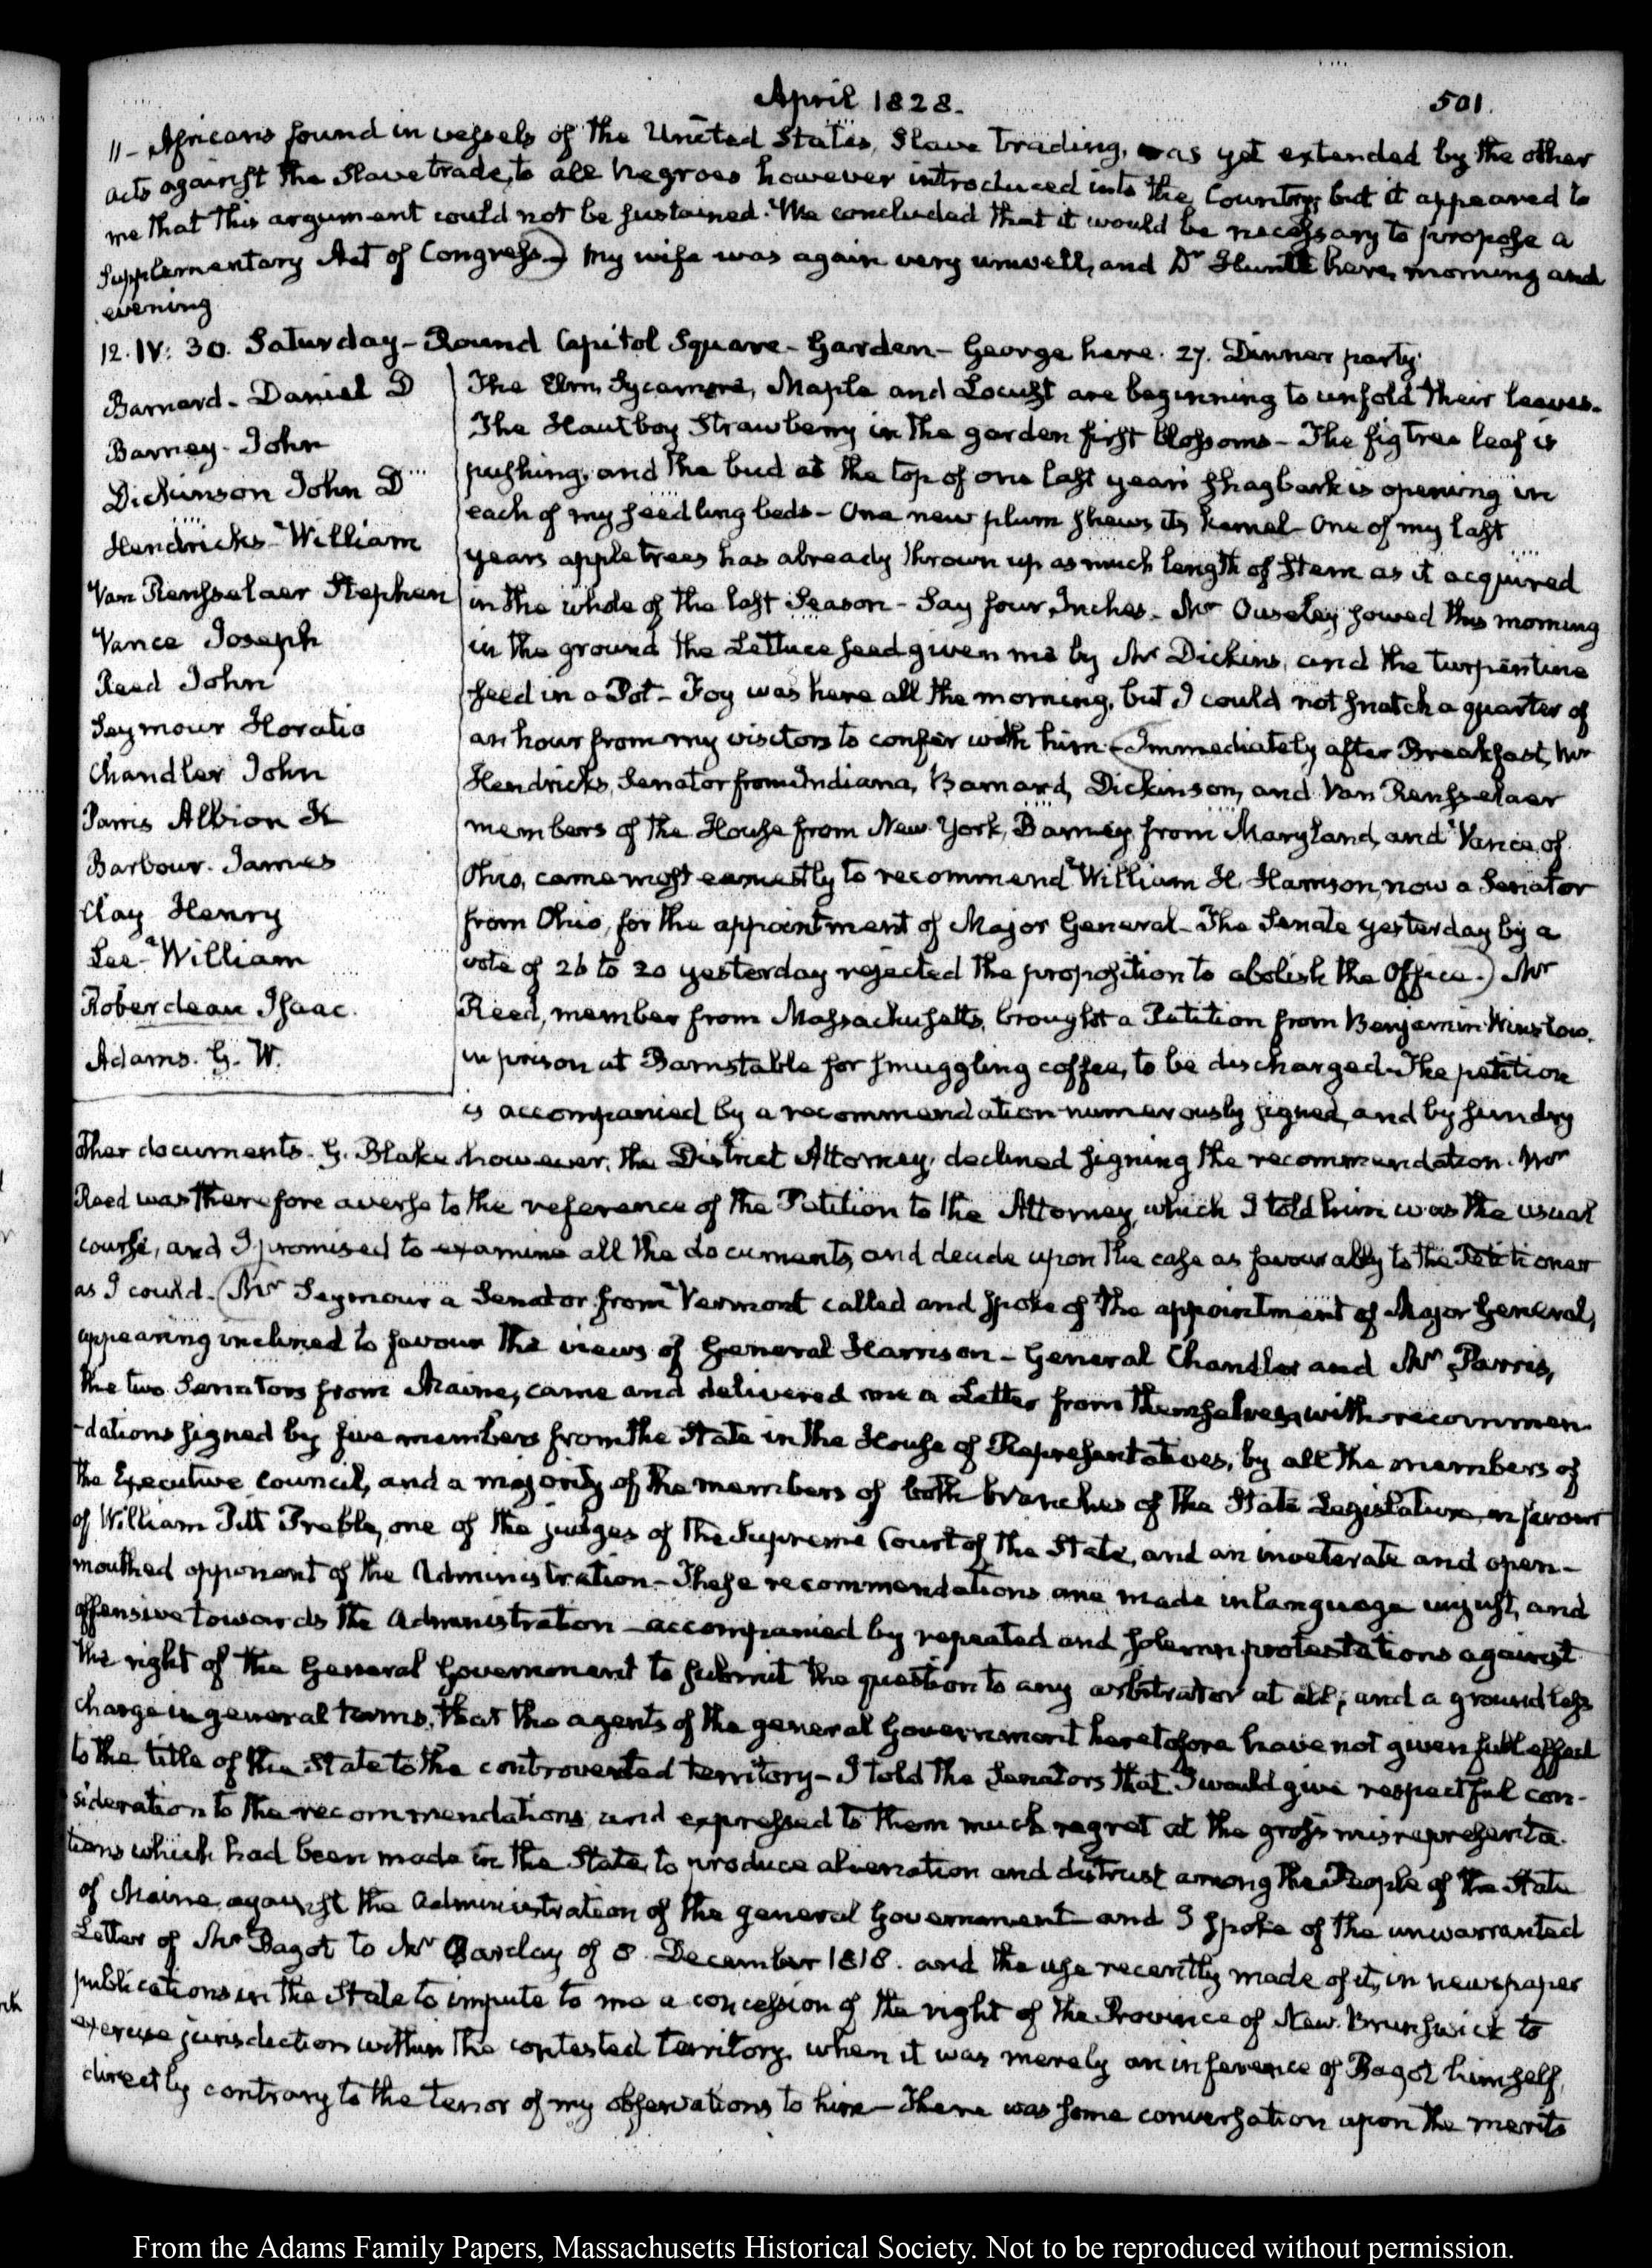 April 1828.
501.
11- Africans found in vessels of the United States, Slave trading, was yet extended by the other
acts against the Slave trade, to all negroes however introduced into the Country; but it appeared to
me that this argument could not be sustained. We concluded that it would be necessary to propose a
Supplementary Act of Congress.) My wife was again very unwell, and Dr Hunt here, morning and
evening
12. IV: 30. Saturday- Round Capitol Square- Garden- George here. 27. Dinner party.
Barnard- Daniel D
Barney- John
Dickinson John D
Hendricks- William
Van Rensselaer Stephen
Vance Joseph
Reed John
Seymour Horatio
Chandler John
Parris Albion K
Barbour. James
Clay Henry
Lee- William
Roberdeau Isaac.
Adams. G. W.
The Elm, Sycamore, Maple and Locust are beginning to unfold their leaves.
The Hautboy Strawberry in the garden first blossoms- The fig tree leaf is
pushing, and the bud at the top of one last year's shagbark is opening in
each of my seedling beds- One new plum shews its kernel- One of my last
years apple trees has already thrown up as much length of stem as it acquired
in the whole of the last Season- Say four Inches- Mr Ouseley sowed this morning
in the ground the Lettuce seed given me by Mr Dickins, and the turpentine
seed in a Pot- Foy was here all the morning, but I could not snatch a quarter of
an hour from my visitors to confer with him- (Immediately after Breakfast, Mr
Hendricks, Senator from Indiana, Barnard, Dickinson, and Van Rensselaer
members of the House from New York, Barney from Maryland, and Vance of
Ohio, came most earnestly to recommend William H. Harrison, now a Senator
from Ohio, for the appointment of Major General- The Senate yesterday by a
vote of 26 to 20 yesterday rejected the proposition to abolish the Office.) Mr
Reed, member from Massachusetts, brought a Petition from Benjamin Winslow,
in prison at Barnstable for smuggling coffee, to be discharged- The petition
is accompanied by a recommendation numerously signed, and by sundry
other documents- G. Blake however, the District Attorney, declined signing the recommendation. Mr
Reed was therefore averse to the reference of the Petition to the Attorney, which I told him was the usual
course, and I promised to examine all the documents, and decide upon the case as favourably to the Petitioner
as I could- (Mr Seymour a Senator from Vermont called and spoke of the appointment of Major General,
appearing inclined to favour the views of General Harrison- General Chandler and Mr Parris,
the two Senators from Maine, came and delivered me a Letter from themselves, with recommen-
-dations signed by five members from the State in the House of Representatives, by all the members of
the Executive Council, and a majority of the members of both branches of the State Legislature, in favour
of William Pitt Preble, one of the judges of the Supreme Court of the State, and an inveterate and open-
mouthed opponent of the Administration- These recommendations are made in language unjust, and
offensive towards the Administration- accompanied by repeated and solemn protestations against
the right of the General Government to submit the question to any arbitrator at all; and a groundless
charge in general terms, that the agents of the general Government heretofore have not given full effect
to the title of the State to the controverted territory- I told the Senators that I would give respectful con-
sideration to the recommendations and expressed to them much regret at the gross misrepresenta-
tions which had been made in the State, to produce alienation and distrust among the People of the State
of Maine against the Administration of the general Government- and I spoke of the unwarranted
Letter of Mr Bagot to Mr Barclay of 8. December 1818. and the use recently made of it, in newspaper
publications in the State to impute to me a concession of the right of the Province of New-Brunswick to
exercise jurisdiction within the contested territory, when it was merely an inference of Bagot himself,
directly contrary to the tenor of my observations to him- There was some conversation upon the merits
From the Adams Family Papers, Massachusetts Historical Society. Not to be reproduced without permission.